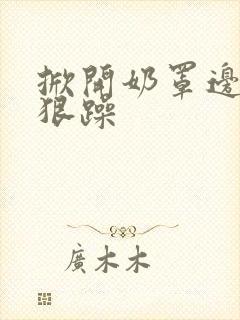 掀開奶罩邊
狠躁
廣木木